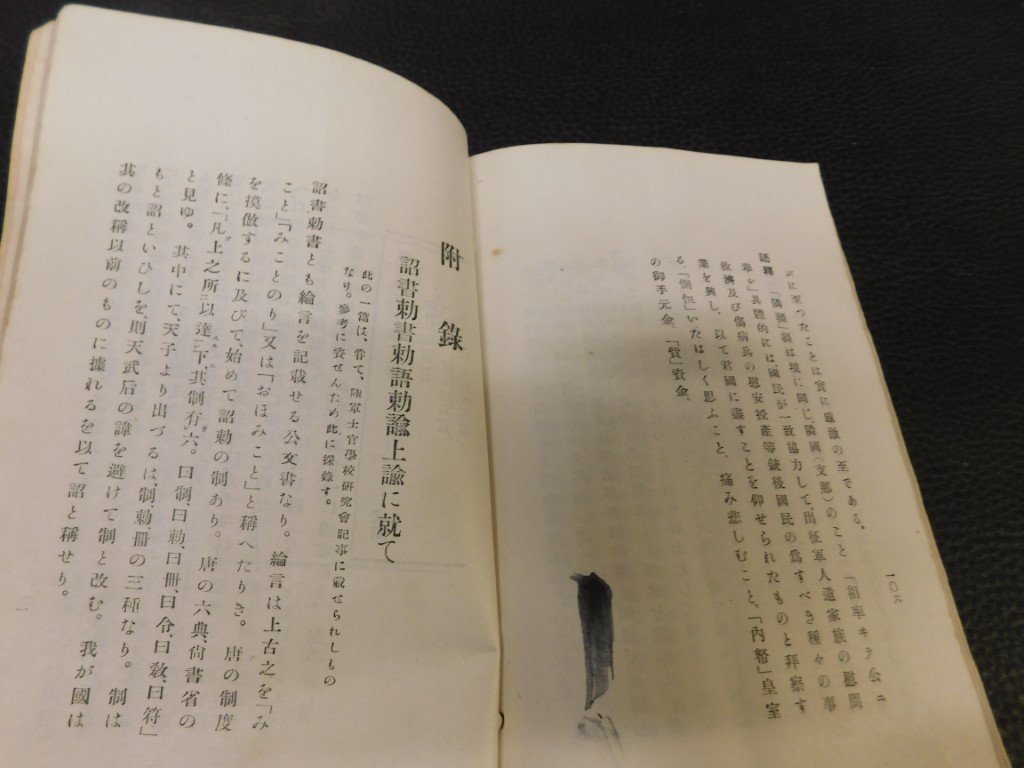 一〇六
…に至つたことは寔に感激の至である。
語釋 「隣疆」疆は境に同じ隣國(支那)のこと 「相率ヰテ公ニ
奉…」具體的には國民が一致協力して、出征軍人遺家族の慰問
救濟及び傷病兵の慰安授產等銃後國民の爲すべき種々の事
業を列し、以て君國に盡すことを仰せられたものと拜察す
る「惻怛」いたはしく思ふこと、痛み悲しむこと。「內帑」皇室
の御手元金、「賚」資金、
附錄
詔書勅書勅語勅諭上諭に就て
此の一篇は、曾て、陸軍士官學校硏究會記事に載せられしもの
なり。參考に資せんため此に採錄す。
詔書勅書とも綸言を記載せる公文書なり。綸言は上古之を「み
こと」「みことのり」又は「おほみこと」と稱へたりき。唐の制度
を摸倣するに及びて、始めて詔勅の制あり。唐の六典、尙書省の
條に、「凡上之所以達下、其制有六。曰制、曰勅、曰冊、曰令、曰敎、曰符」
と見ゆ。其中にて、天子より出づるは、制、勅、冊の三種なり。制は
もと詔といひしを、則天武后の諱を避けて制と改む。我が國は
其の改稱以前のものに據れるを以て詔と稱せり。
一